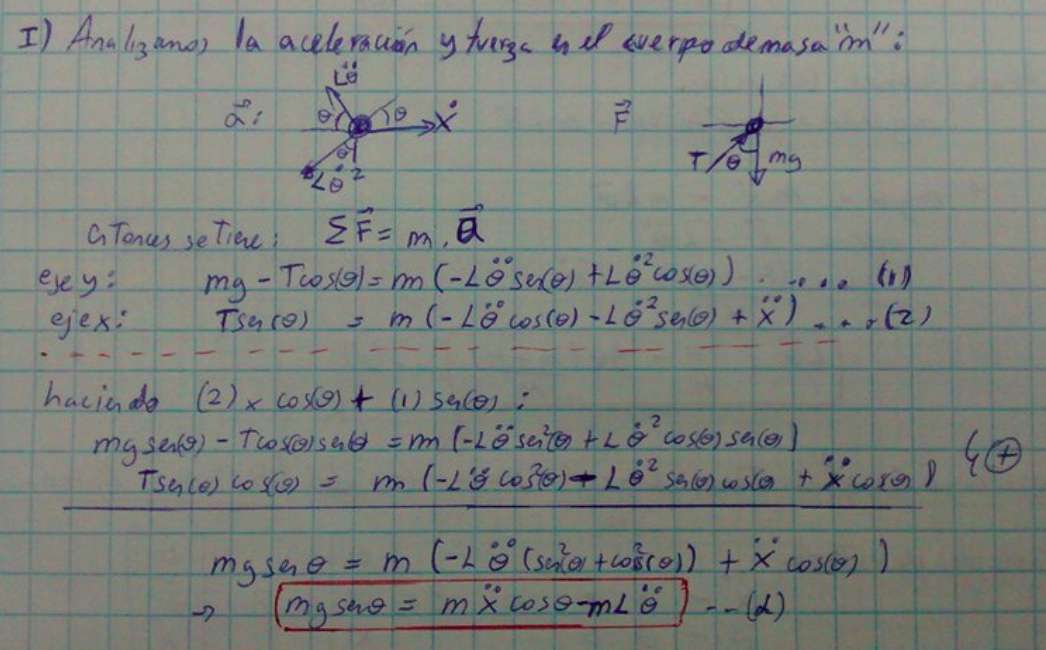 I) Analizamos la aceleración y fuerza en el cuerpo de masa "m":
Lθ̈
a⃗: θ θ Ẍ F⃗
θ T θ mg
Lθ̇²
entonces se tiene: ΣF⃗ = m.a⃗
eje y: mg - Tcos(θ) = m(-Lθ̈ sen(θ) + Lθ̇² cos(θ)) ..... (1)
eje x: Tsen(θ) = m(-Lθ̈ cos(θ) - Lθ̇² sen(θ) + ẍ) ... (2)
haciendo (2) x cos(θ) + (1) sen(θ):
mg sen(θ) - Tcos(θ)senθ = m(-Lθ̈ sen²θ + Lθ̇² cos(θ) sen(θ)) +
Tsen(θ) cos(θ) = m(-Lθ̈ cos²(θ) - Lθ̇² sen(θ) cos(θ) + ẍ cos(θ))
mg senθ = m(-Lθ̈ (sen²(θ) + cos²(θ)) + ẍ cos(θ))
⇒ mg senθ = mẍ cosθ - mLθ̈ -- (α)